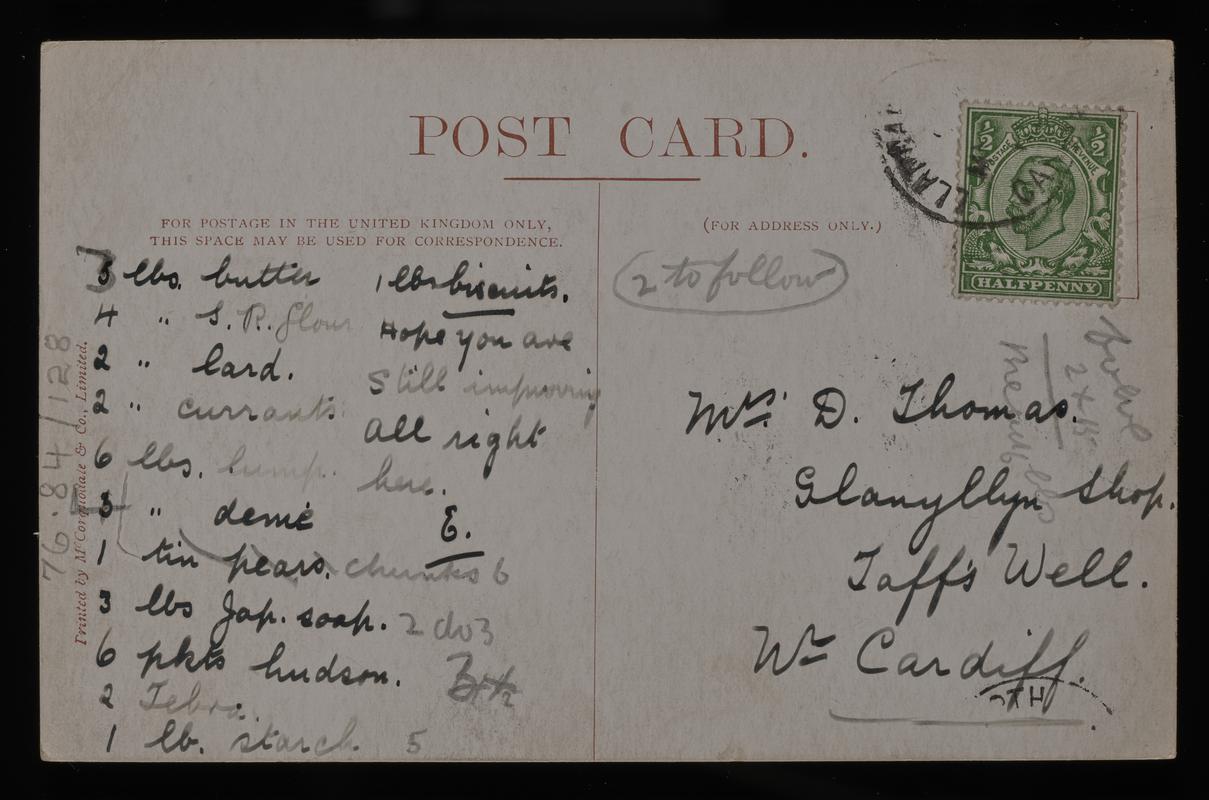 POST CARD.
FOR POSTAGE IN THE UNITED KINGDOM ONLY,
THIS SPACE MAY BE USED FOR CORRESPONDENCE.
(FOR ADDRESS ONLY.)
½ ½
POSTAGE REVENUE
HALFPENNY
3 lbs. butter
4 " S. R. flour
2 " lard.
2 " currants.
6 lbs. lump.
3 " deme
1 tin pears. chunks 6
3 lbs Jap. soap. 2 do 3
6 pkts hudson.
2 Zebra.
1 lb. starch 5
1 lbs biscuits.
Hope you are
still improving
all right
here.
E.
2 to follow
Mrs. D. Thomas.
Glanyllyn Shop.
Taff's Well.
Nr Cardiff.
76.84/128
Printed by McCorquodale & Co., Limited.